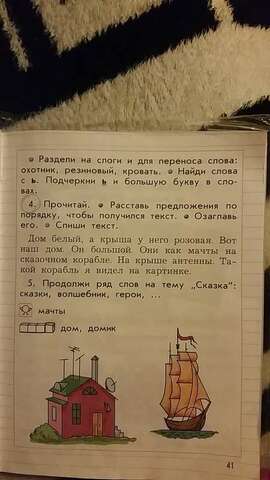 • Раздели на слоги и для переноса слова:
охотник, резиновый, кровать. • Найди слова
с ь. Подчеркни ь и большую букву в сло-
вах.
4. Прочитай. • Расставь предложения по
порядку, чтобы получился текст. • Озаглавь
его. • Спиши текст.
Дом белый, а крыша у него розовая. Вот
наш дом. Он большой. Они как мачты на
сказочном корабле. На крыше антенны. Та-
кой корабль я видел на картинке.
5. Продолжи ряд слов на тему „Сказка":
сказки, волшебник, герои, ...
мачты
дом, домик
41